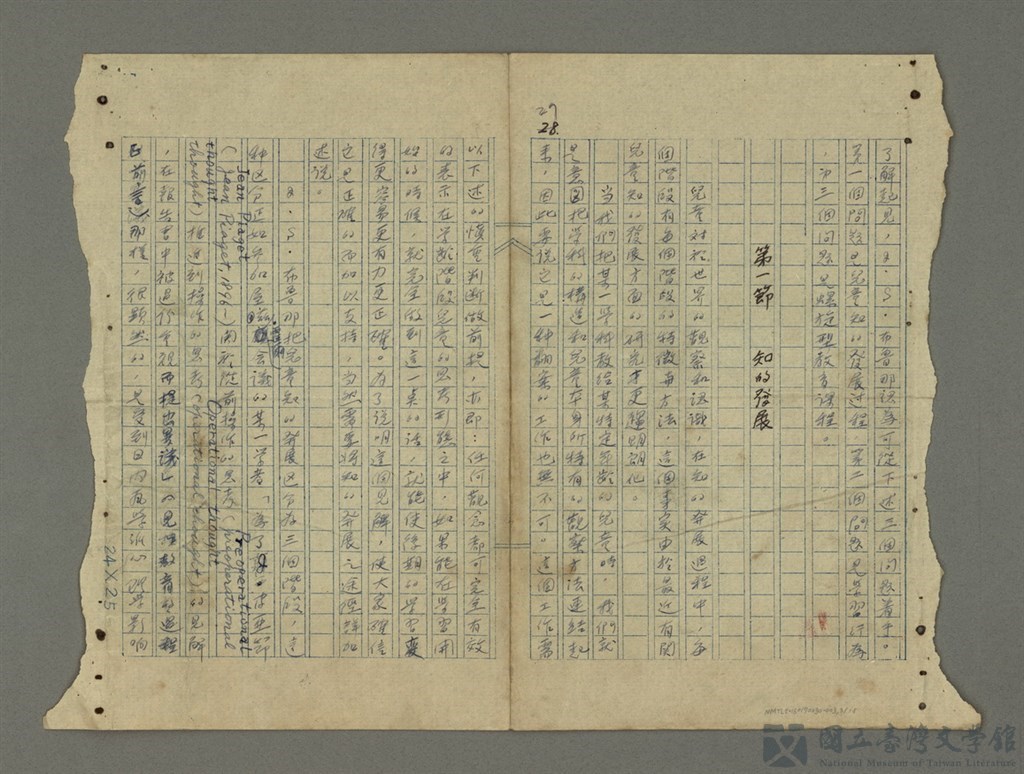 了解起見，J．S．布魯那認為可從下述三個問題着手。
第一個問題是兒童知的發展過程，第二個問題是學習行為
，第三個問題是螺旋型教育課程。
第一節　知的發展
兒童對於世界的觀察和認識，在知的發展過程中，有
個階段有每個階段的特徵與方法，這個事實由於最近有關
兒童知的發展方面的研究更趨明朗化。
當我們把某一學科教給某特定年齡的兒童時，我們就
是意圖把學科的構造和兒童本身所持有的觀察方法連結起
來，因此要說它是一種翻案的工作也無不可。這個工作需
27
28.
以下述的慎重判斷做前提，亦即：任何觀念都可完全有效
的表示在學齡階段兒童的思考形態之中，如果能在學習開
始的時候，就完全做到這一點的話，就能使後期的學習變
得更容易更有力更正確。為了說明這個見解，使大家確信
它是正確的而加以支持，當然需要將知的發展之途徑詳加
述說。
J．S．布魯那把兒童知的發展區分為三個階段，這
種區分是如參加屋茲會議的某一學者「為了
Jean Piaget
（Jean Piaget, 1896～）闡釋從前操作的思考（Preoperational
thought）推移到操作的思考（Operational thought）的見解
，在報告書中被過份重視而提出異議」的見
前言）那樣，很顯然的，是受到日內瓦學派心理學影響
Preoperational
thought
Operational thought
24×25
國立臺灣文學館
National Museum of Taiwan Literature